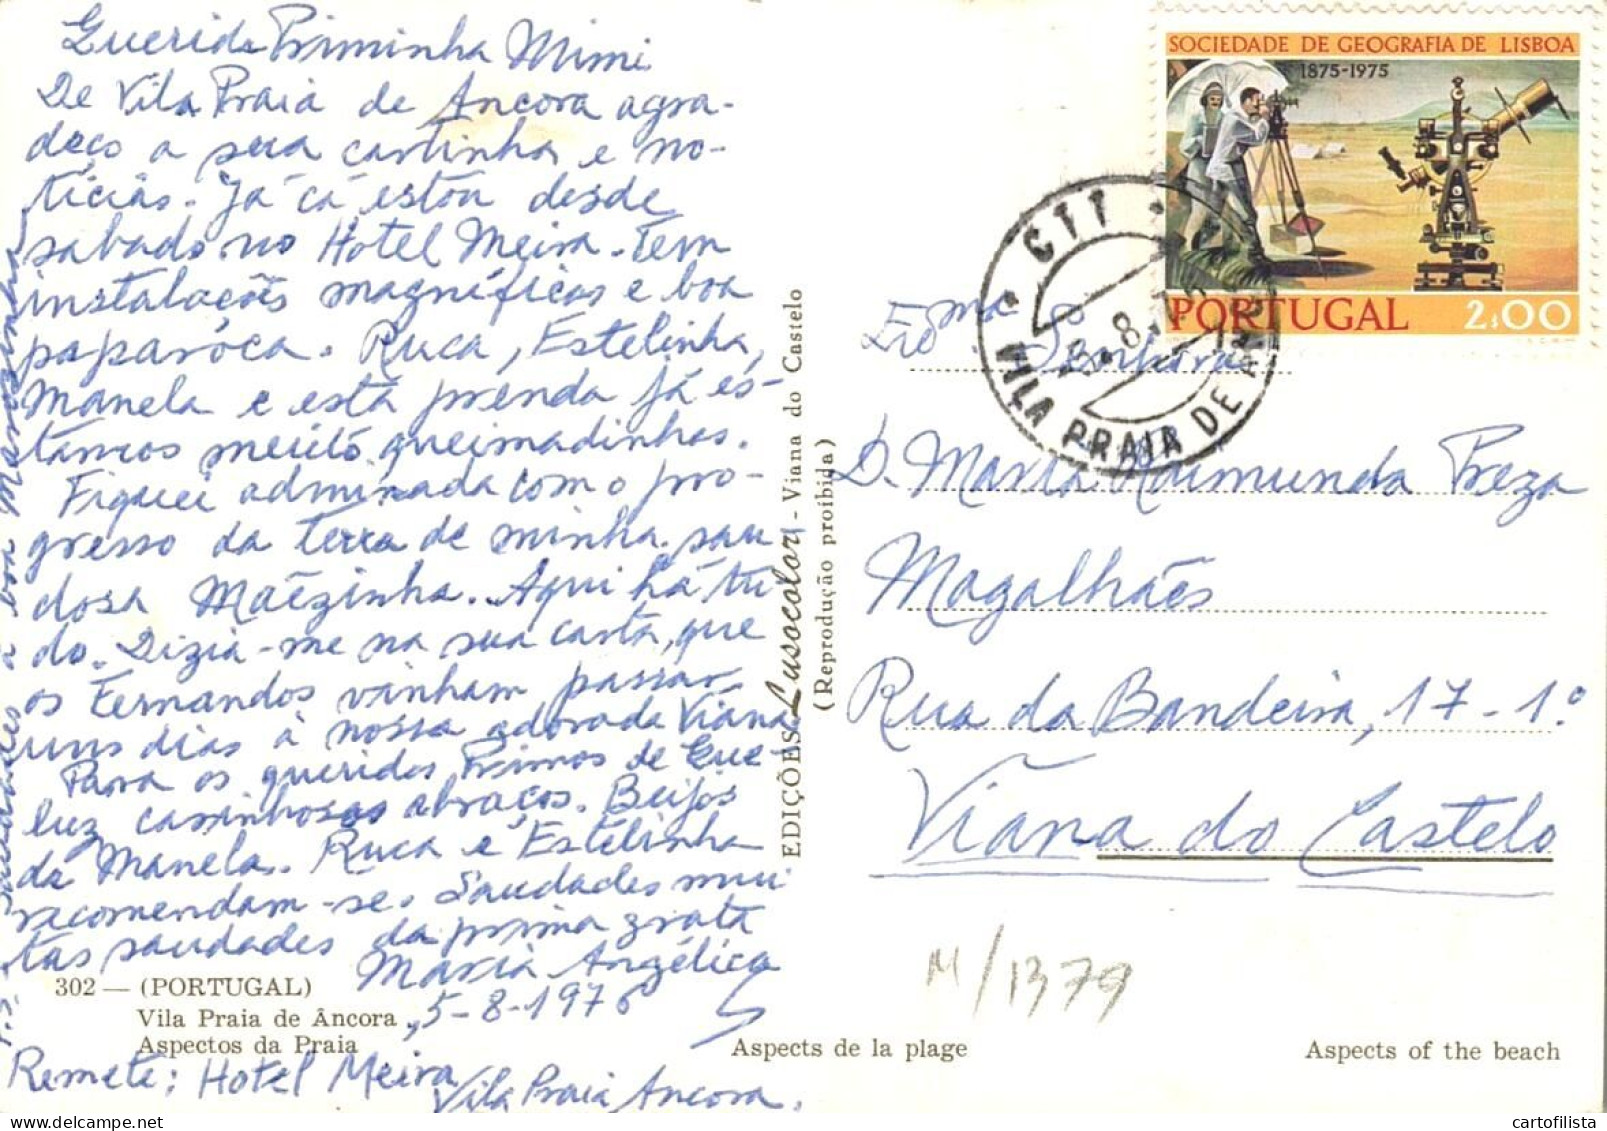 Querida Priminha Mimi
De Vila Praia de Ancora agra-
deço a sua cartinha e no-
tícias. Já cá estou desde
sabado no Hotel Meira. Tem
instalações magníficas e boa
paparóca. Ruca, Estelinha,
Manela e esta prenda já es-
tamos muito queimadinhas.
Fiquei admirada com o pro-
gresso da terra de minha sau
dosa Mãezinha. Aqui há tu
do. Dizia-me na sua carta, que
os Fernandos vinham passar
uns dias à nossa adorada Viana
Para os queridos Primos de Que-
luz carinhosos abraços. Beijos
da Manela. Ruca e Estelinha
recomendam-se. Saudades mui
tas saudades da prima grata
Maria Angélica
5-8-1976
302 — (PORTUGAL)
Vila Praia de Âncora
Aspectos da Praia
Aspects de la plage
Aspects of the beach
Remete: Hotel Meira
Vila Praia Ancora.
P.S. Saudades a boa
EDIÇÕES Lusocolor - Viana do Castelo
(Reprodução proibida)
SOCIEDADE DE GEOGRAFIA DE LISBOA
1875-1975
PORTUGAL 2$00
CTT
VILA PRAIA DE
Exma
Senhora
D. Maria Raimunda Preza
Magalhães
Rua da Bandeira, 17-1.º
Viana do Castelo
M/1379
cartofilista